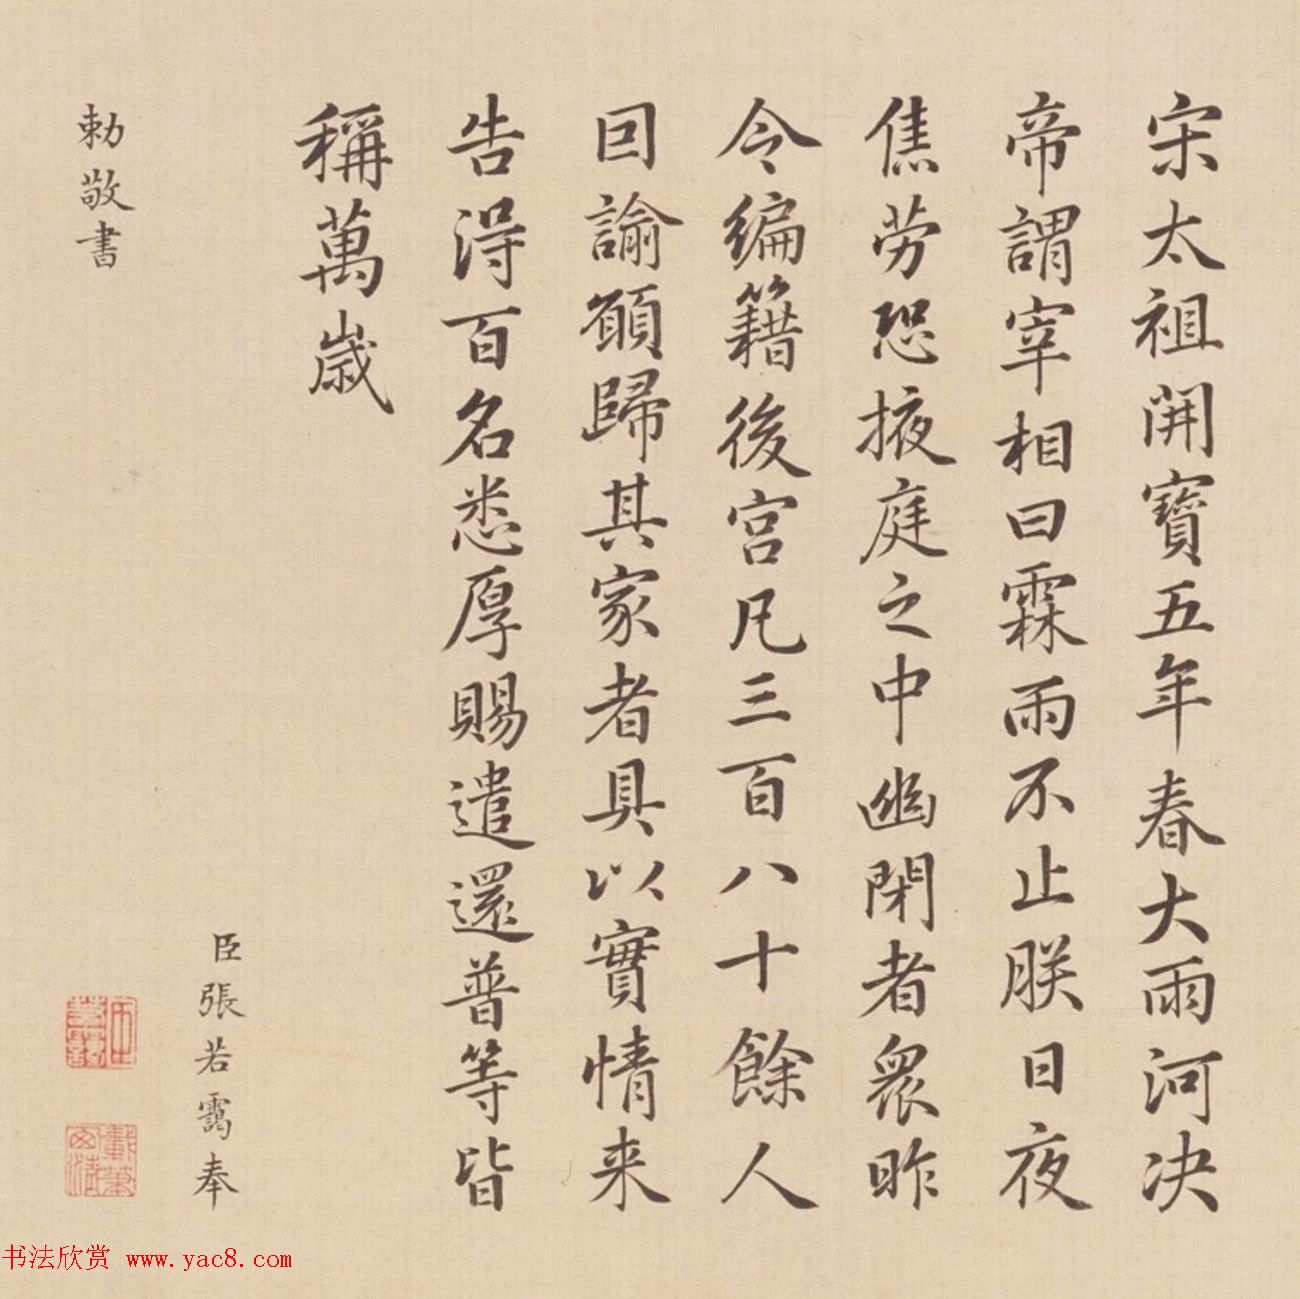 宋太祖開寶五年春大雨河决
帝謂宰相曰霖雨不止朕日夜
焦勞恐掖庭之中幽閉者衆昨
令編籍後宮凡三百八十餘人
囙諭願歸其家者具以實情来
告得百名悉厚賜遣還普等皆
稱萬歲
臣張若靄奉
勅敬書
书法欣赏 www.yac8.com